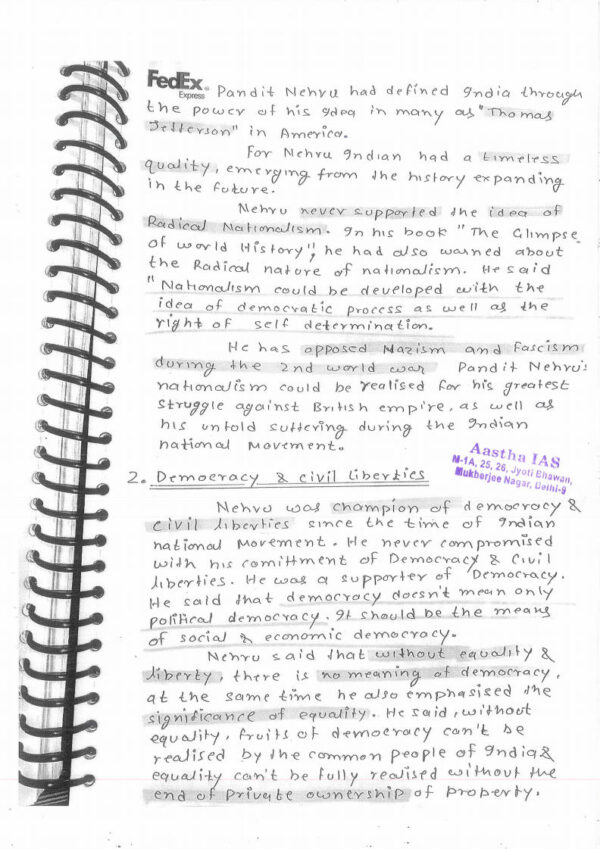 FedEx
Express
Pandit Nehru had defined India through
the power of his Idea in many as "Thomas
Jefferson" in America.
For Nehru Indian had a timeless
quality, emerging from the history expanding
in the future.
Nehru never supported the idea of
Radical Nationalism. In his book "The Glimpse
of world History", he had also warned about
the Radical nature of nationalism. He said
"Nationalism could be developed with the
idea of democratic process as well as the
right of self determination.
He has opposed Nazism and Fascism
during the 2nd world war Pandit Nehru's
nationalism could be realised for his greatest
struggle against British empire, as well as
his untold suffering during the Indian
national Movement.
Aastha IAS
M-1A, 25, 26, Jyoti Bhawan,
Mukherjee Nagar, Delhi-9
2. Democracy & civil liberties
Nehru was champion of democracy &
civil liberties since the time of Indian
national Movement. He never compromised
with his comittment of Democracy & Civil
liberties. He was a supporter of Democracy.
He said that democracy doesn't mean only
political democracy. It should be the means
of social & economic democracy.
Nehru said that without equality &
liberty, there is no meaning of democracy,
at the same time he also emphasised the
significance of equality. He said, without
equality, fruits of democracy can't be
realised by the common people of India &
equality can't be fully realised without the
end of private ownership of property.